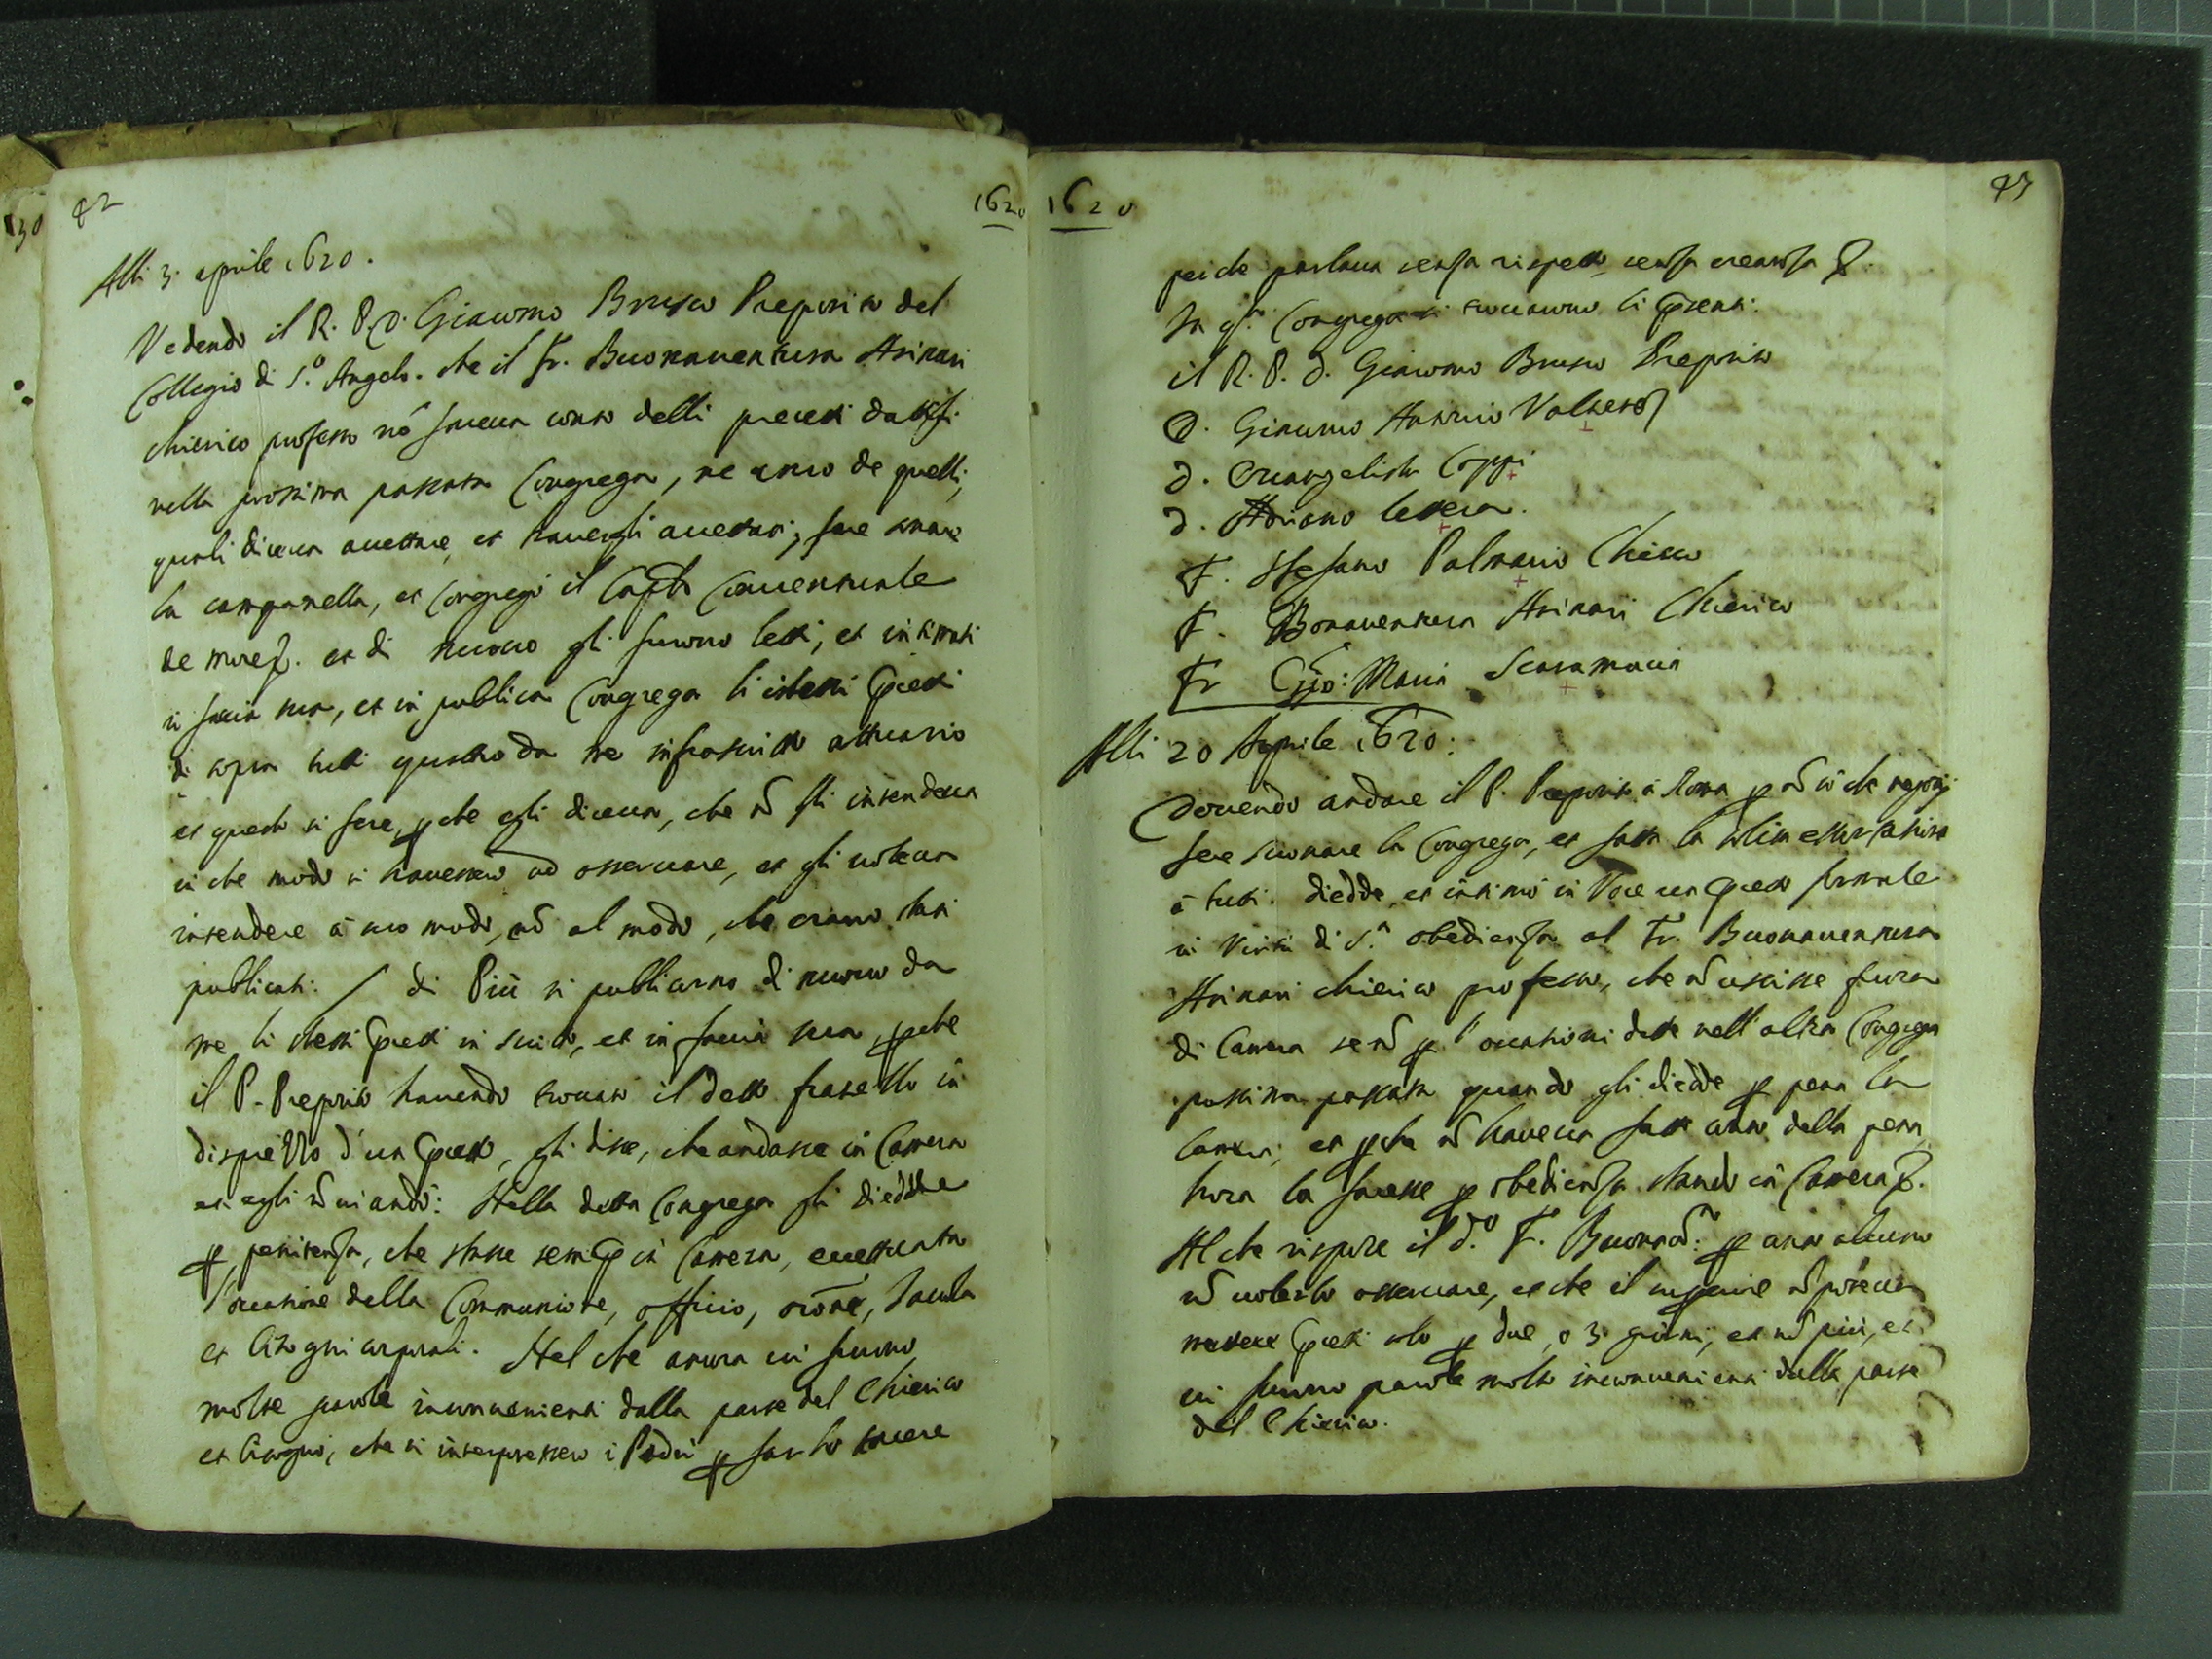 82
1620
Alli 3. aprile 1620.
Vedendo il R. P. D. Giacomo Brusco Preposito del
Collegio di S.º Angelo. che il Fr. Buonauentura Asinari
chierico professo nõ faceua conto delli precetti datigli
nella prossima passata Congrega, ne anco de quelli,
quali diceua accettare, et hauergli accettati, fece sonare
la campanella, et congregò il Capło Conuentuale
de more. et di nuouo gli furono letti, et intimati
in faccia sua, et in publica Congrega li istessi pcetti
di sopra tutti quattro da me infrascritto attuario
et questo si fece, pche egli diceua, che nõ gli intendeua
in che modo si hauessero ad osseruare, et gli uoleua
intendere à suo modo, nõ al modo, che erano stati
publicati. / di Più si publicorno di nuouo da
me li stessi pcetti in scritto, et in faccia sua, pche
il P. Preposito hauendo trouato il detto fratello in
disprezzo d'un pcetto, gli disse, che andasse in Camera
et egli nõ ui andò: Nella detta Congrega gli diedde
p penitenza, che stasse semp in Camera, eccettuata
l'occasione della Communione, officio, orõne, Tauola
et bisogni corporali. Nel che ancora ui furono
molte parole inconuenienti dalla parte del Chierico
et bisognò, che si interponessero i Padri p farlo tacere
1620
83
poiche parlaua senza rispetto, senza creanza
In q.ta Congrega si trouorono li pšenti.
il R. P. D. Giacomo Brusco Preposito
D. Giacomo Antonio Valtorta
D. Euangelista Coppi
D. Adriano
F. Steffano Palmario Chierico
F. Bonauentura Asinari Chierico
Fr Gio: Maria Scaramuccia
Alli 20 Aprile 1620:
Douendo andare il P. Preposito à Roma p nõ sò che negotij
fece suonare la Congrega, et fatta la solita essortatione
à tutti. diedde, et intimò in Voce un pcetto formale
in Virtù di S.ta obedienza al Fr. Buonauentura
Asinari chierico professo, che nõ uscisse fuora
di Camera se nõ p l'occasioni dette nell'altra Congrega
prossima passata quando gli diedde p pena la
Camera, et pche nõ haueua fatto conto della pena,
hora la facesse p obedienza stando in Camera.
Al che rispose il d.º F. Buonau.ra: p conto alcuno
nõ uolerlo osseruare, et che il superiore nõ poteua
mettere pcetti solo p due, o 3 giorni, et nõ più, et
ui furono parole molto inconuenienti dalla parte
del Chierico.